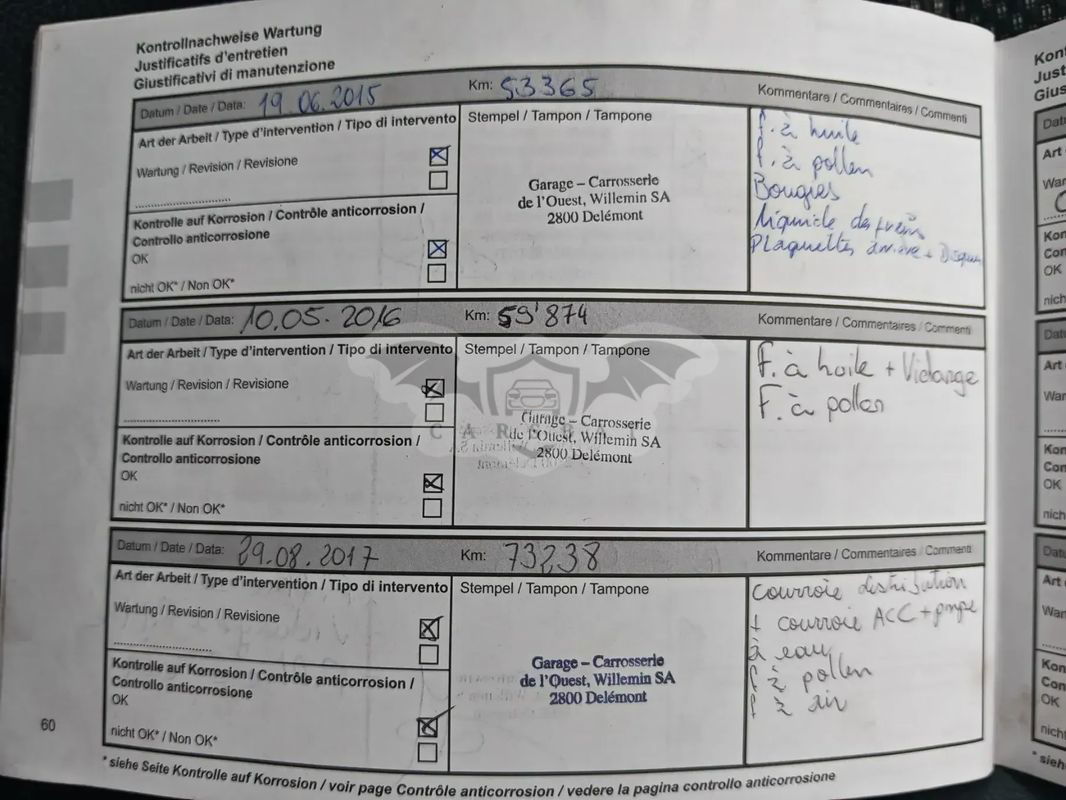 Kontrollnachweise Wartung
Justificatifs d'entretien
Giustificativi di manutenzione
Datum / Date / Data: 19.06.2015 Km: 53365 Kommentare / Commentaires / Commenti
Art der Arbeit / Type d'intervention / Tipo di intervento
Stempel / Tampon / Tampone
Wartung / Revision / Revisione
Kontrolle auf Korrosion / Contrôle anticorrosion /
Controllo anticorrosione
OK
nicht OK* / Non OK*
Garage – Carrosserie
de l'Ouest, Willemin SA
2800 Delémont
f. à huile
f. à pollen
Bougies
Liquide de frein
Plaquettes arrière + Disques
Datum / Date / Data: 10.05.2016 Km: 59'874 Kommentare / Commentaires / Commenti
Art der Arbeit / Type d'intervention / Tipo di intervento
Stempel / Tampon / Tampone
Wartung / Revision / Revisione
Kontrolle auf Korrosion / Contrôle anticorrosion /
Controllo anticorrosione
OK
nicht OK* / Non OK*
Garage – Carrosserie
de l'Ouest, Willemin SA
2800 Delémont
F. à huile + Vidange
F. à pollen
Datum / Date / Data: 29.08.2017 Km: 73238 Kommentare / Commentaires / Commenti
Art der Arbeit / Type d'intervention / Tipo di intervento
Stempel / Tampon / Tampone
Wartung / Revision / Revisione
Kontrolle auf Korrosion / Contrôle anticorrosion /
Controllo anticorrosione
OK
nicht OK* / Non OK*
Garage – Carrosserie
de l'Ouest, Willemin SA
2800 Delémont
courroie distribution
+ courroie ACC + pompe
à eau
f à pollen
f à air
60
* siehe Seite Kontrolle auf Korrosion / voir page Contrôle anticorrosion / vedere la pagina controllo anticorrosione